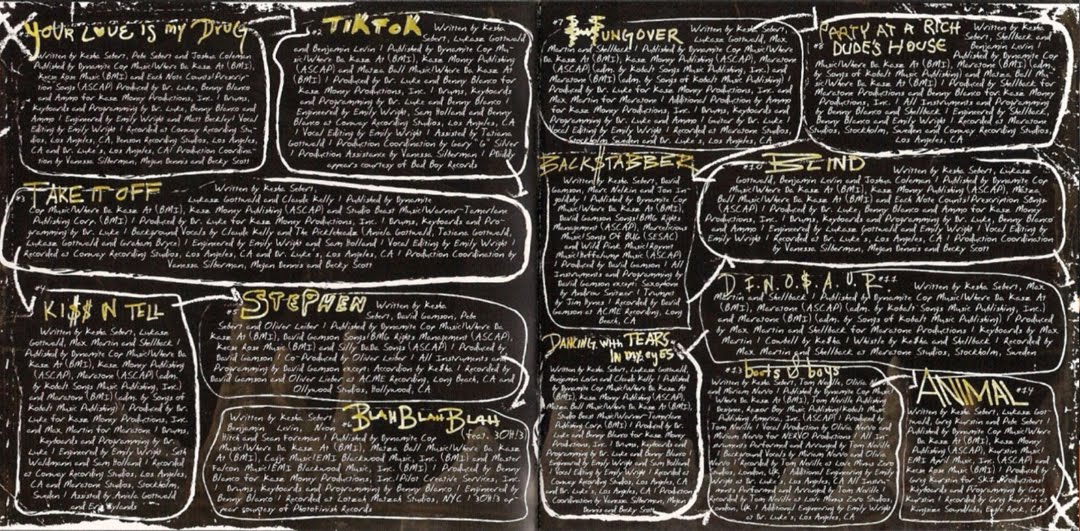 YOUR LOVE IS MY DRUG
Written by Kesha Sebert, Pete Sebert and Joshua Coleman
Published by Dynamite Cop Music/Where Da Kasz At (BMI),
Kecse Rose Music (BMI) and Each Note Counts/Prescrip-
tion Songs (ASCAP) | Produced by Dr. Luke, Benny Blanco
and Ammo for Kasz Money Productions, Inc. | Drums,
Keyboards and Programming by Dr. Luke, Benny Blanco and
Ammo | Engineered by Emily Wright and Matt Beckley | Vocal
Editing by Emily Wright | Recorded at Conway Recording Stu-
dios, Los Angeles, CA, Benson Recording, Los Angeles,
CA and Dr. Luke's, Los Angeles, CA | Production Coordina-
tion by Vanessa Silberman, Megan Dennis and Becky Scott
#2 TiK ToK
Written by Kesha
Sebert, Lukasz Gottwald
and Benjamin Levin | Published by Dynamite Cop Mu-
sic/Where Da Kasz At (BMI), Kasz Money Publishing
(ASCAP) and Matza Ball Music/Where Da Kasz At
(BMI) | Produced by Dr. Luke and Benny Blanco for
Kasz Money Productions, Inc. | Drums, Keyboards
and Programming by Dr. Luke and Benny Blanco |
Engineered by Emily Wright, Sam Holland and Benny
Blanco at Conway Recording Studios, Los Angeles, CA
| Vocal Editing by Emily Wright | Assisted by Tatiana
Gottwald | Production Coordination by Gary "G" Silver
| Production Assistance by Vanessa Silberman | PDiddy
appears courtesy of Bad Boy Records
#3 TAKE IT OFF
Written by Kesha Sebert,
Lukasz Gottwald and Claude Kelly | Published by Dynamite
Cop Music/Where Da Kasz At (BMI), Kasz Money Publishing (ASCAP) and Studio Beast Music/Warner-Tamerlane
Publishing Corp. (BMI) | Produced by Dr. Luke for Kasz Money Productions, Inc. | Drums, Keyboards and Pro-
gramming by Dr. Luke | Background Vocals by Claude Kelly and The Pickleheadz (Aniela Gottwald, Tatiana Gottwald,
Lukasz Gottwald and Graham Bryce) | Engineered by Emily Wright and Sam Holland | Vocal Editing by Emily Wright |
Recorded at Conway Recording Studios, Los Angeles, CA and Dr. Luke's, Los Angeles, CA | Production Coordination by
Vanessa Silberman, Megan Dennis and Becky Scott
KI$$ N TELL
Written by Kesha Sebert, Lukasz
Gottwald, Max Martin and Shellback |
Published by Dynamite Cop Music/Where Da
Kasz At (BMI), Kasz Money Publishing
(ASCAP) and Maratone (ASCAP) (adm.
by Kobalt Songs Music Publishing, Inc.)
and Maratone (BMI) (adm. by Songs of
Kobalt Music Publishing) | Produced by Dr.
Luke for Kasz Money Productions, Inc.
and Max Martin for Maratone | Drums,
Keyboards and Programming by Dr.
Luke | Engineered by Emily Wright, Seth
Waldmann and Sam Holland | Recorded at
Conway Recording Studios, Los Angeles,
CA and Maratone Studios, Stockholm,
Sweden | Assisted by Aniela Gottwald
and Eric Wylands
#5 STEPHEN
Written by Kesha
Sebert, David Gamson, Pete
Sebert and Oliver Leiber | Published by Dynamite Cop Music/Where Da
Kasz At (BMI), David Gamson Songs/BMG Rights Management (ASCAP),
Kecse Rose Music (BMI) and Silly DaDa Songs (ASCAP) | Produced by
David Gamson | Co-Produced by Oliver Leiber | All Instruments and
Programming by David Gamson except: Accordion by Ke$ha | Recorded by
David Gamson and Oliver Leiber at ACME Recording, Long Beach, CA and
Ollywood Studios, Hollywood, CA
#6 BLAH BLAH BLAH
(feat. 3OH!3)
Written by Kesha Sebert,
Benjamin Levin, Neon
Hitch and Sean Foreman | Published by Dynamite Cop
Music/Where Da Kasz At (BMI), Matza Ball Music/Where Da Kasz
At (BMI), EMI Music/EMI Blackwood Music, Inc. (BMI) and Master
Falcon Music/EMI Blackwood Music, Inc. (BMI) | Produced by Benny
Blanco for Kasz Money Productions, Inc./Pilot Creative Services, Inc.
| Drums, Keyboards and Programming by Benny Blanco | Engineered by
Benny Blanco | Recorded at Lotzah Matzah Studios, NYC | 3OH!3 ap-
pear courtesy of Photofinish Records
#7 $$UNGOVER
Written by Kesha Sebert,
Lukasz Gottwald, Max
Martin and Shellback | Published by Dynamite Cop
Music/Where Da Kasz At (BMI), Kasz Money Publishing (ASCAP), Maratone
(ASCAP) (adm. by Kobalt Songs Music Publishing, Inc.) and
Maratone (BMI) (adm. by Songs of Kobalt Music Publishing) |
Produced by Dr. Luke for Kasz Money Productions, Inc. and
Max Martin for Maratone | Additional Production by Ammo
for Kasz Money Productions, Inc. | Drums, Keyboards and
Programming by Dr. Luke and Ammo | Guitar by Dr. Luke |
Vocal Editing by Emily Wright | Recorded at Maratone Studios,
Stockholm, Sweden and Dr. Luke's, Los Angeles, CA
#8 PARTY AT A RICH
DUDE'S HOUSE
Written by Kesha
Sebert, Shellback and
Benjamin Levin |
Published by Dynamite Cop Music/Where Da Kasz At
(BMI), Maratone (BMI) (adm.
by Songs of Kobalt Music Publishing) and Matza Ball Mu-
sic/Where Da Kasz At (BMI) | Produced by Shellback for
Maratone and Benny Blanco for Kasz Money
Productions, Inc. | All Instruments and Programming
by Benny Blanco and Shellback | Engineered by Shellback,
Benny Blanco and Emily Wright | Recorded at Maratone
Studios, Stockholm, Sweden and Conway Recording Studios,
Los Angeles, CA
BACK$TABBER
Written by Kesha Sebert, David
Gamson, Marc Nelkin and Jon In-
goldsby | Published by Dynamite Cop
Music/Where Da Kasz At (BMI),
David Gamson Songs/BMG Rights
Management (ASCAP), Marcelicious
Music/Songs Of BLG (SESAC)
and Wild Pink Music/Rayner
Music/Heffelump Music (ASCAP)
| Produced by David Gamson | All
Instruments and Programming by
David Gamson except: Saxophone
by Andrew Snitzer | Trumpet
by Jim Hynes | Recorded by David
Gamson at ACME Recording, Long
Beach, CA
#10 BLIND
Written by Kesha Sebert, Lukasz
Gottwald, Benjamin Levin and Joshua Coleman | Published by Dynamite Cop
Music/Where Da Kasz At (BMI), Kasz Money Publishing (ASCAP), Matza
Ball Music/Where Da Kasz At (BMI) and Each Note Counts/Prescription Songs
(ASCAP) | Produced by Dr. Luke, Benny Blanco and Ammo for Kasz Money
Productions, Inc. | Drums, Keyboards and Programming by Dr. Luke, Benny Blanco
and Ammo | Engineered by Emily Wright | Guitar by Dr. Luke | Vocal Editing by
Emily Wright | Recorded at Dr. Luke's, Los Angeles, CA | Production Coordination
by Vanessa Silberman, Megan Dennis and Becky Scott
D.I.N.O.$.A.U.R. #11
Written by Kesha Sebert, Max
Martin and Shellback | Published by Dynamite Cop Music/Where Da Kasz At
(BMI), Maratone (ASCAP) (adm. by Kobalt Songs Music Publishing, Inc.)
and Maratone (BMI) (adm. by Songs of Kobalt Music Publishing) | Produced by
Max Martin and Shellback for Maratone Productions | Keyboards by Max
Martin | Cowbell by Ke$ha | Whistle by Ke$ha | Recorded by
Max Martin and Shellback at Maratone Studios, Stockholm, Sweden
DANCING with TEARS
IN my eyES
Written by Kesha Sebert, Lukasz Gottwald,
Benjamin Levin and Claude Kelly | Published
by Dynamite Cop Music/Where Da Kasz At
(BMI), Kasz Money Publishing (ASCAP),
Matza Ball Music/Where Da Kasz At (BMI) and
Studio Beast Music/Warner-Tamerlane
Publishing Corp. (BMI) | Produced by Dr.
Luke and Benny Blanco for Kasz Money
Productions, Inc. | Drums, Keyboards and
Programming by Dr. Luke and Benny Blanco |
Engineered by Emily Wright and Sam Holland |
Vocal Editing by Emily Wright | Recorded at
Conway Recording Studios, Los Angeles, CA
and Dr. Luke's, Los Angeles, CA | Production
Coordination by Vanessa Silberman, Megan
Dennis and Becky Scott
#13 boots & boys
Written by Kesha Sebert, Tom Neville, Olivia Nervo
and Miriam Nervo | Published by Dynamite Cop
Music/Where Da Kasz At (BMI), Tom Neville Publishing
Designee, Razor Boy Music Publishing/Kobalt Music
Publishing America, Inc. (ASCAP) | Produced by
Tom Neville | Vocal Production by Olivia Nervo and
Miriam Nervo for NERVO Productions | All In-
struments Performed and Arranged by Tom Neville |
Background Vocals by Miriam Nervo and Olivia
Nervo | Recorded by Tom Neville at Los Minas Zoro
Studios, London, UK | Additional Engineering by Emily
Wright at Dr. Luke's, Los Angeles, CA
ANIMAL #14
Written by Kesha Sebert, Lukasz Got-
twald, Greg Kurstin and Pete Sebert
| Published by Dynamite Cop
Music/Where Da Kasz At
(BMI), Kasz Money
Publishing (ASCAP), Kurstin Music/
EMI April Music, Inc. (ASCAP) and
Kecse Rose Music (BMI) | Produced by
Greg Kurstin for SKJ Productions |
Keyboards and Programming by Greg
Kurstin | Recorded by Greg Kurstin at
Kingsize Soundlabs, Eagle Rock, CA